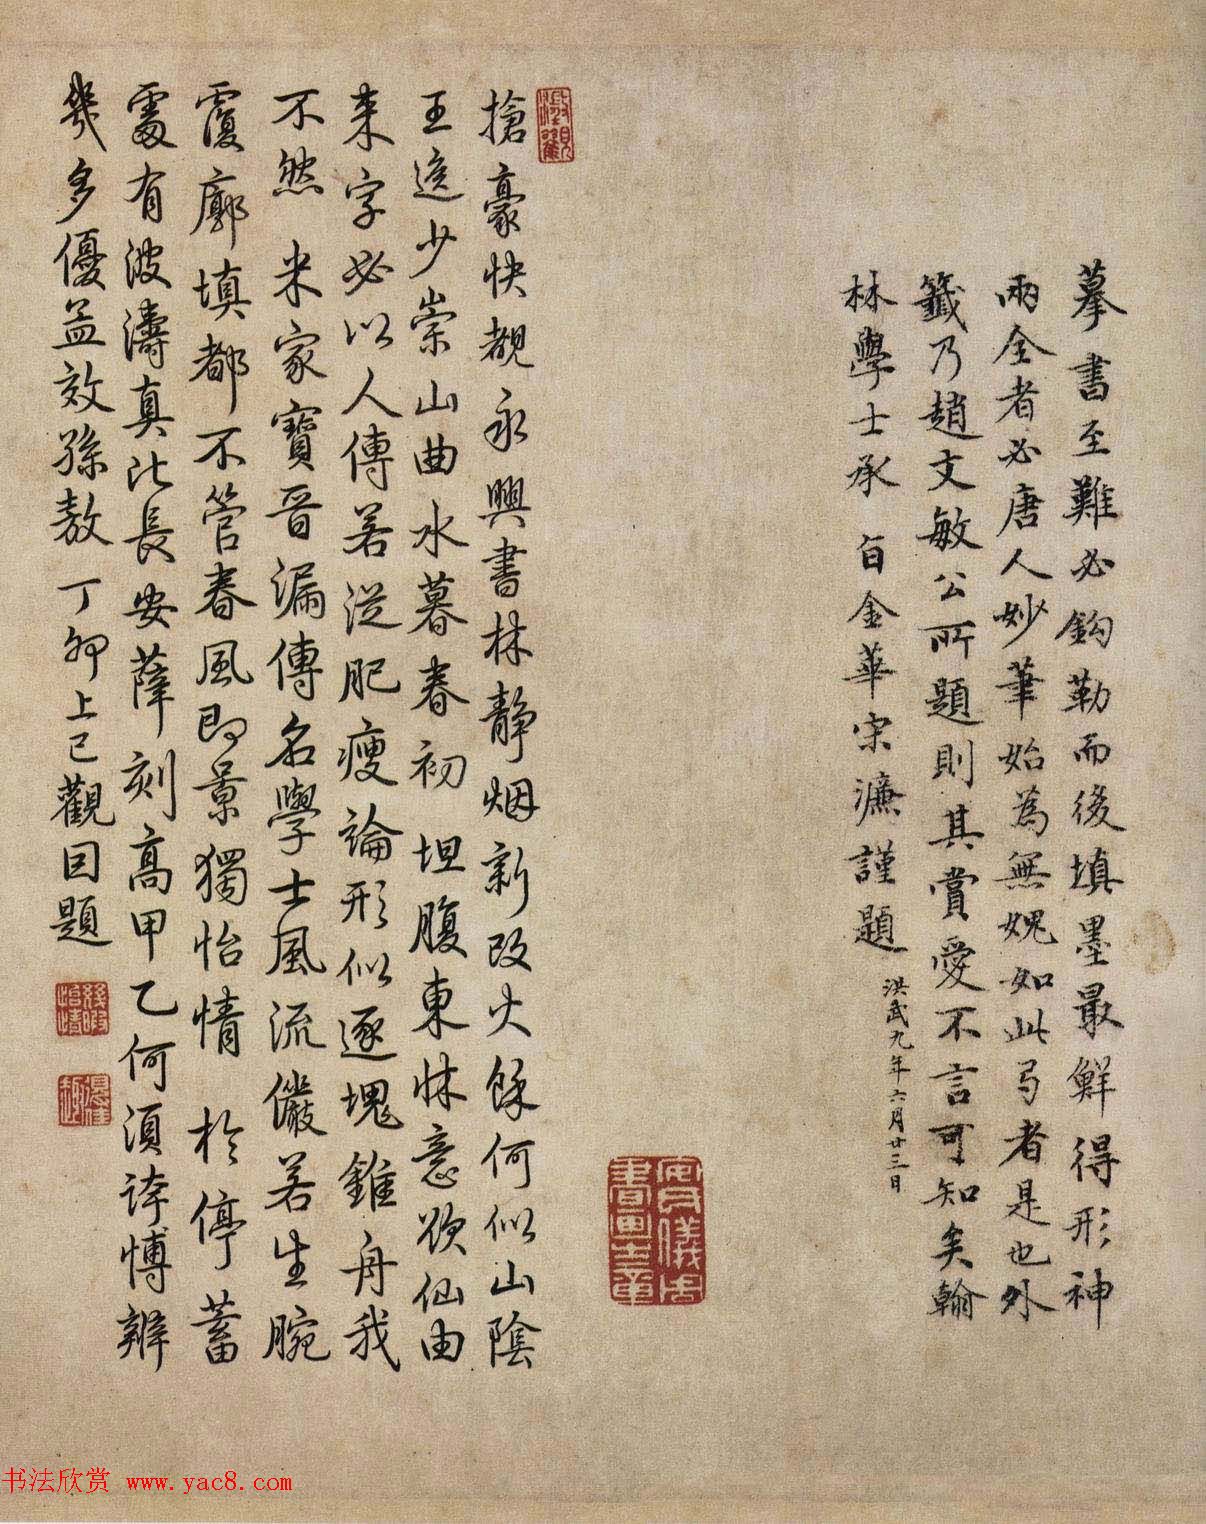 摹書至難必鈎勒而後填墨最鮮得形神
兩全者必唐人妙筆始為無媿如此弓者是也外
籤乃趙文敏公所題則其賞愛不言可知矣翰
林學士承 旨金華宋濂謹題 洪武九年六月廿三日
安氏儀周書畫之章
搶豪快覩永興書林靜烟新改火餘何似山陰
王逸少崇山曲水暮春初 坦腹東牀意欲仙由
來字必以人傳若從肥瘦論形似逐塊錐舟我
不然 米家寶晉漏傳名學士風流儼若生腕
覆廓填都不管春風即景獨怡情 於停蓄
處有波濤真比長安薛刻高甲乙何須誇博辨
幾多優孟效孫敖 丁卯上巳觀因題
幾暇怡情
得佳趣
书法欣赏 www.yac8.com